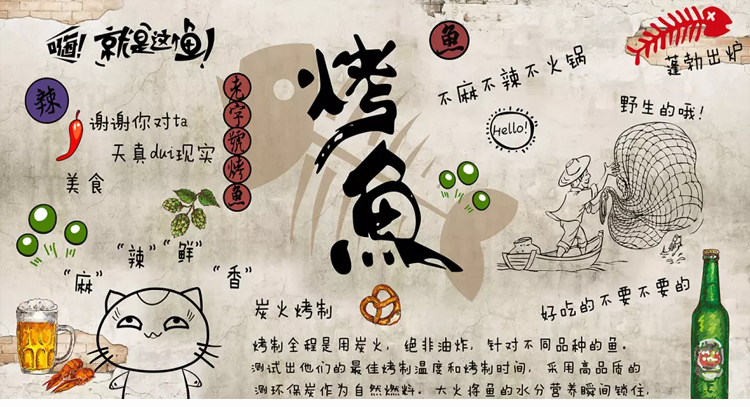 嗨！就是这个鱼！
鱼
蓬勃出炉
烤鱼
老字號烤鱼
不麻不辣不火锅
辣
谢谢你对ta
天真dui现实
美食
Hello!
野生的哦！
"麻"
"辣"
"鲜"
"香"
好吃的不要不要的
炭火烤制
烤制全程是用炭火，绝非油炸，针对不同品种的鱼。
测试出他们的最佳烤制温度和烤制时间，采用高品质的
测环保炭作为自然燃料。大火将鱼的水分营养瞬间锁住，